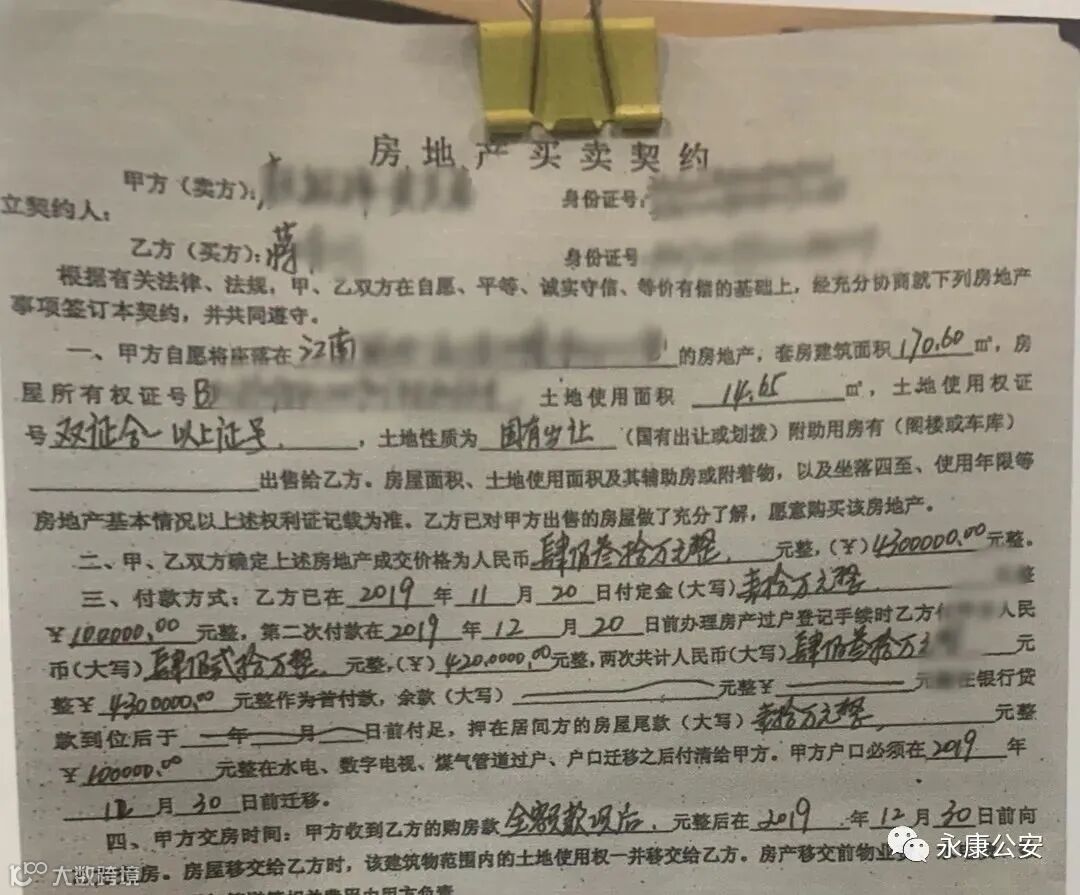 房地产买卖契约
甲方（卖方）： 身份证号：
立契约人：
乙方（买方）：蒋 身份证号
根据有关法律、法规，甲、乙双方在自愿、平等、诚实守信、等价有偿的基础上，经充分协商就下列房地产
事项签订本契约，并共同遵守。
一、甲方自愿将座落在 江南 的房地产，套房建筑面积 170.60 ㎡，房
屋所有权证号 B 土地使用面积 14.65 ㎡，土地使用权证
号 双证合一 以上证号 ，土地性质为 国有出让 （国有出让或划拨）附助用房有（阁楼或车库）
出售给乙方。房屋面积、土地使用面积及其辅助房或附着物，以及坐落四至、使用年限等
房地产基本情况以上述权利证记载为准。乙方已对甲方出售的房屋做了充分了解，愿意购买该房地产。
二、甲、乙双方确定上述房地产成交价格为人民币 肆佰叁拾万元整 元整，（￥）4300000.00 元整。
三、付款方式：乙方已在 2019 年 11 月 20 日付定金（大写）壹拾万元整 整
￥ 100000.00 元整，第二次付款在 2019 年 12 月 20 日前办理房产过户登记手续时乙方 人民
币（大写）肆佰贰拾万整 元整，（￥）4200000.00 元整，两次共计人民币（大写）肆佰叁拾万 元
整￥ 4300000.00 元整作为首付款，余款（大写） 元整￥ 银行贷
款到位后于 年 月 日前付足，押在居间方的房屋尾款（大写）壹拾万元整 元整
￥ 100000.00 元整在水电、数字电视、煤气管道过户、户口迁移之后付清给甲方。甲方户口必须在 2019 年
12 月 30 日前迁移。
四、甲方交房时间：甲方收到乙方的购房款 全额款项后 元整后在 2019 年 12 月 30 日前向
房。房屋移交给乙方时，该建筑物范围内的土地使用权一并移交给乙方。房产移交前物业
永康公安
大数跨境